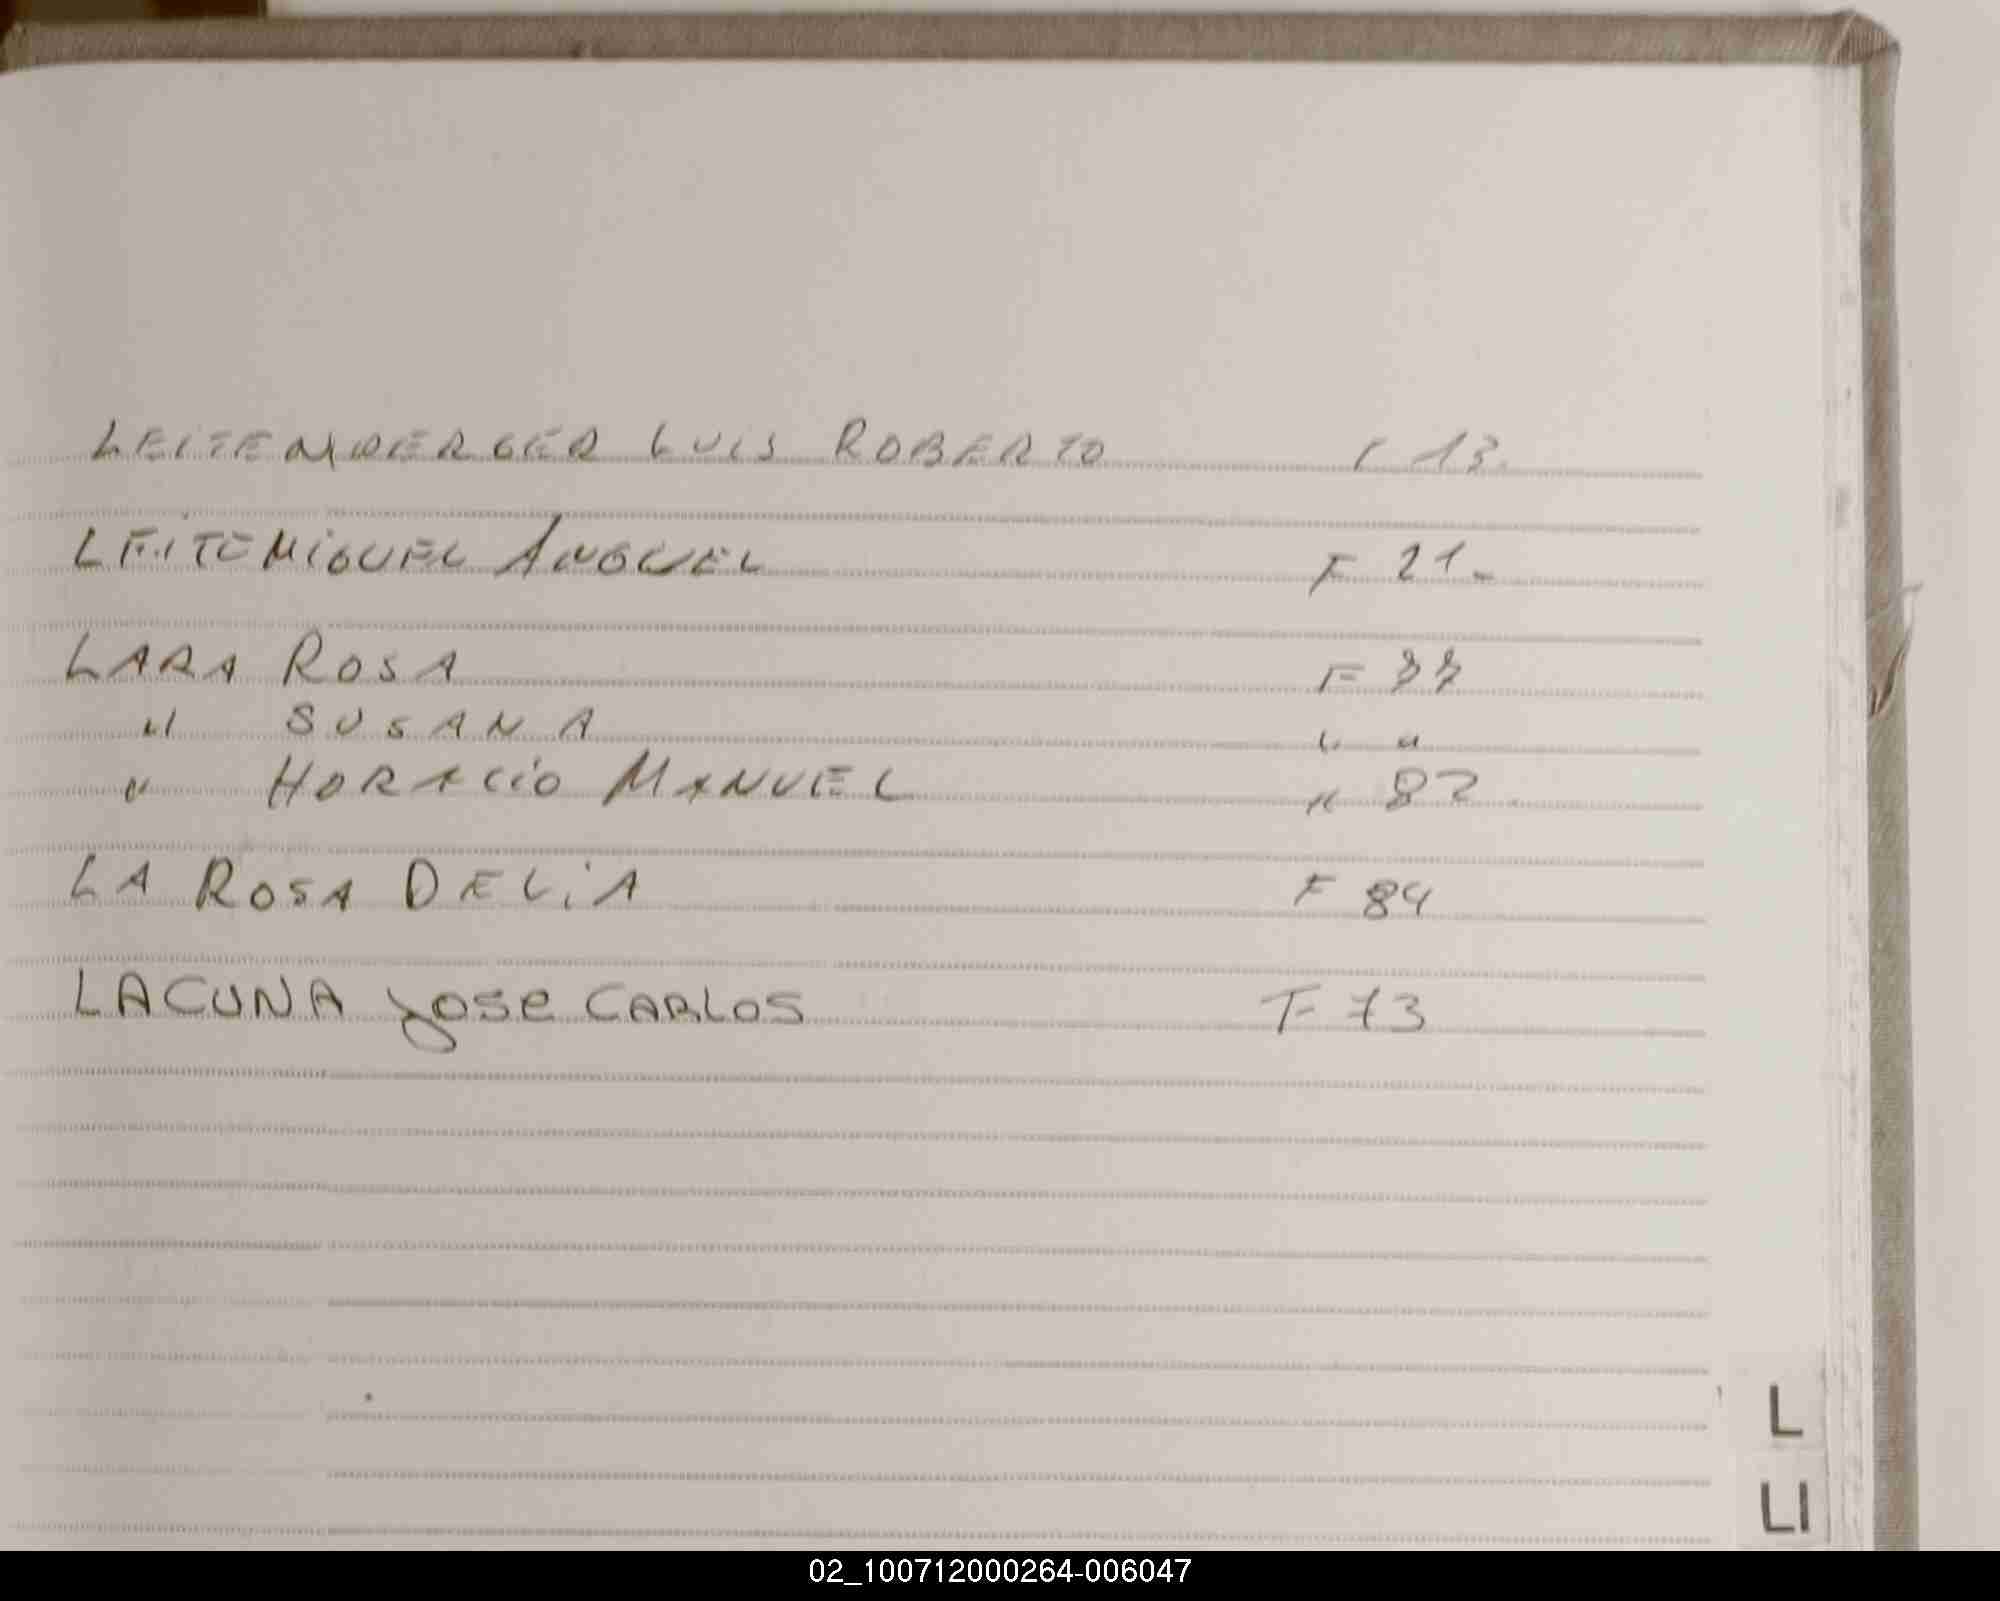 LEITEMBERGER LUIS ROBERTO F 13.
LEITE MIGUEL ANGUEL F 21.
LARA ROSA F
" SUSANA " "
" HORACIO MANUEL " 82
LA ROSA DELIA F 84
LACUNA JOSE CARLOS F 73
L
LI
02_100712000264-006047